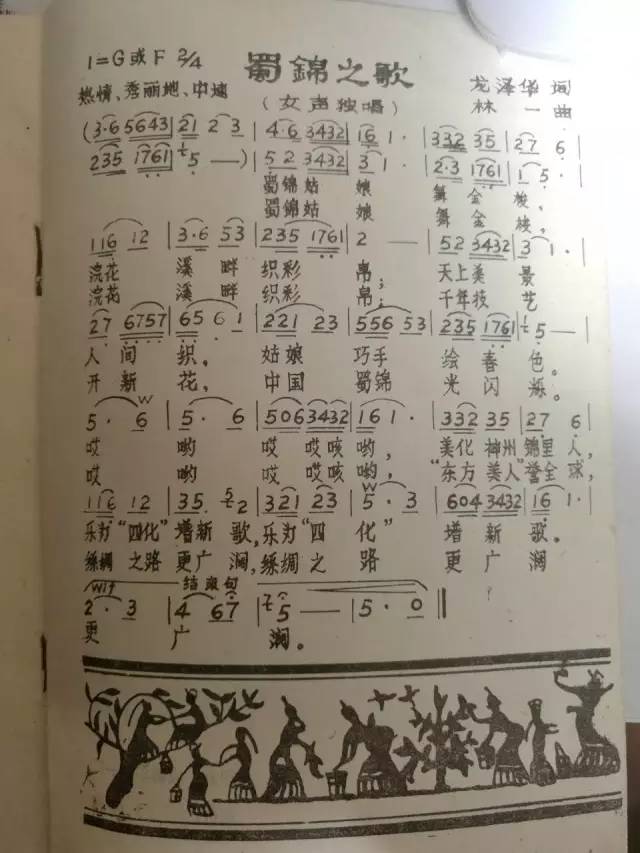 1=G或F 2/4 蜀錦之歌 龙泽华 词
热情、秀丽地、中速 (女声独唱) 林一 曲
(3·6 5643 | 21 2 3 | 4·6 3432 | 16 1· | 332 35 | 27 6·
235 1761 | 5 —) | 52 3432 | 3 1· | 2·3 1761 | 1 5·
蜀锦姑 娘 舞金 梭,
蜀锦姑 娘 舞金 梭,
116 12 | 3·6 53 | 235 1761 | 2 — | 52 3432 | 3 1·
浣花 溪畔 织彩 帛; 天上美 景
浣花 溪畔 织彩 帛; 千年技 艺
27 6757 | 65 6 1 | 221 23 | 556 53 | 235 1761 | 5 —
人间 织。 姑娘 巧手 绘春 色。
开新 花, 中国 蜀锦 光闪 烁。
5· 6 | 5· 6 | 506 3432 | 16 1· | 332 35 | 27 6·
哎 哟 哎 哎咳 哟, 美化 神州 锦里 人,
哎 哟 哎 哎咳 哟, “东方 美人”誉全 球,
116 12 | 35 2· | 321 23 | 5· 3 | 604 3432 | 16 1·
乐为“四化” 增新 歌,乐为“四 化” 增新 歌。
丝绸 之路 更广 阔,丝绸 之 路 更广 阔
wit 结束句
2· 3 | 4 67 | 5 — | 5· 0 ‖
更 广 阔。